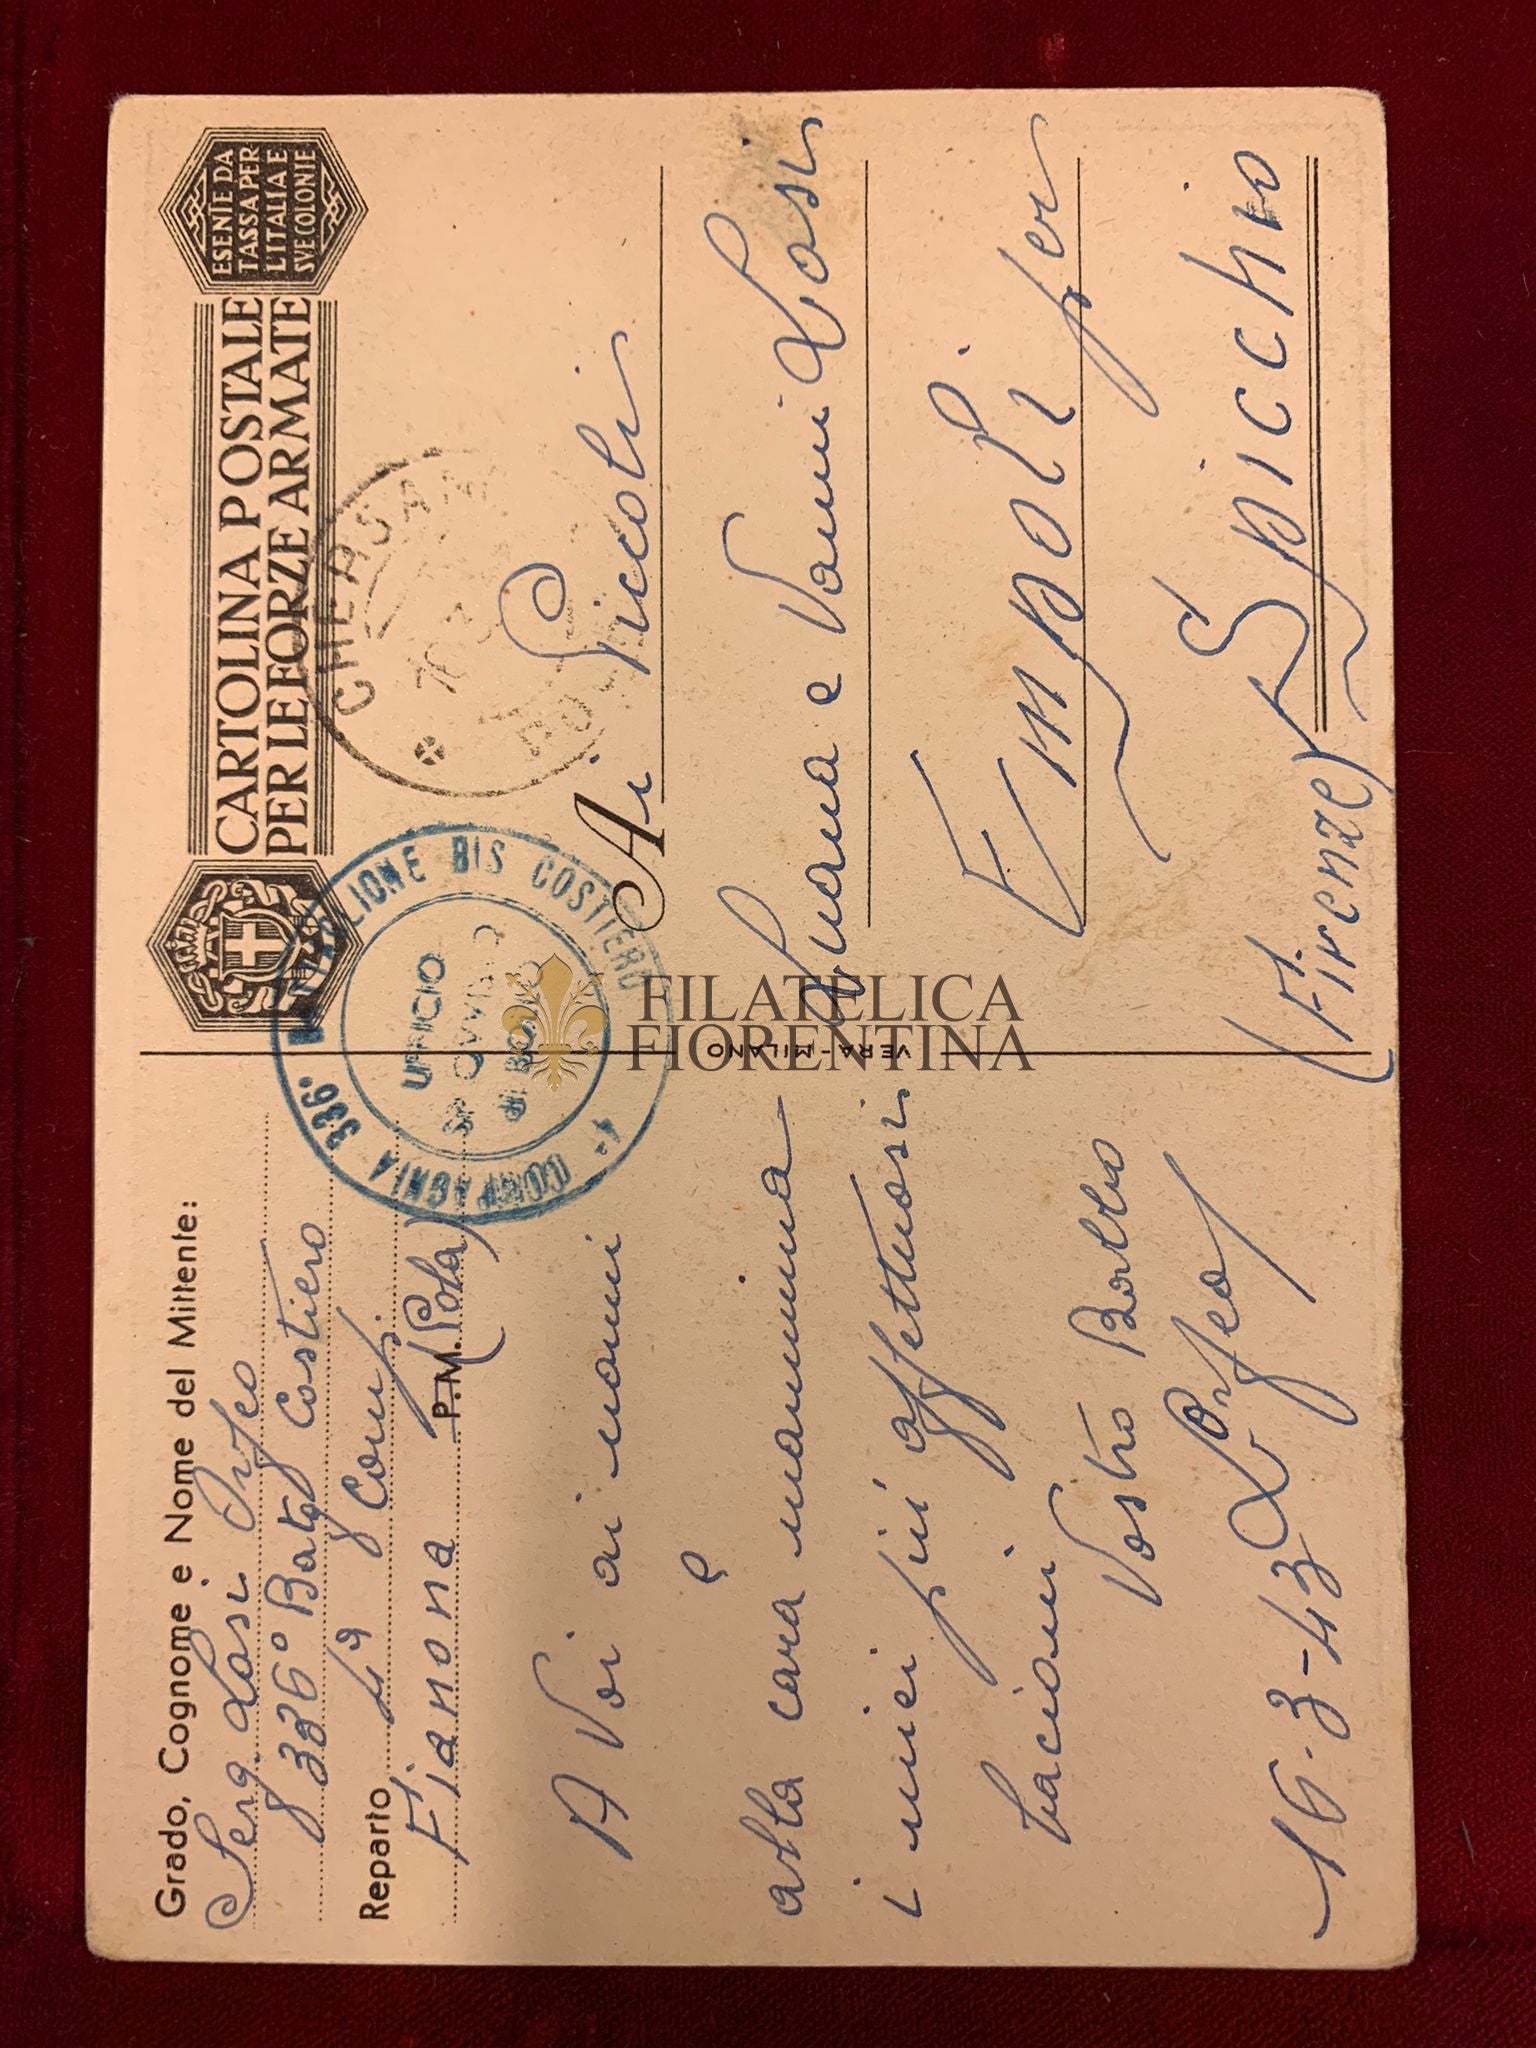 Grado, Cognome e Nome del Mittente:
Serg. Losi Orfeo
336° Batg Costiero
Reparto 4ª Comp.
Fianona P.M. (Pola)
A Voi ai nonni
e
alla cara mamma
i miei più affettuosi
bacioni
Vostro Babbo
Orfeo
16-3-43
CARTOLINA POSTALE
PER LE FORZE ARMATE
ESENTE DA
TASSA PER
L'ITALIA E
SUE COLONIE
CHERSANO
POLA
4ª COMPAGNIA 336° BATTAGLIONE BIS COSTIERO
UFFICIO
Ai Piccoli
Luana e Vanni Losi
Empoli per
Spicchio
(Firenze)
VERA - MILANO
FILATELICA
FIORENTINA